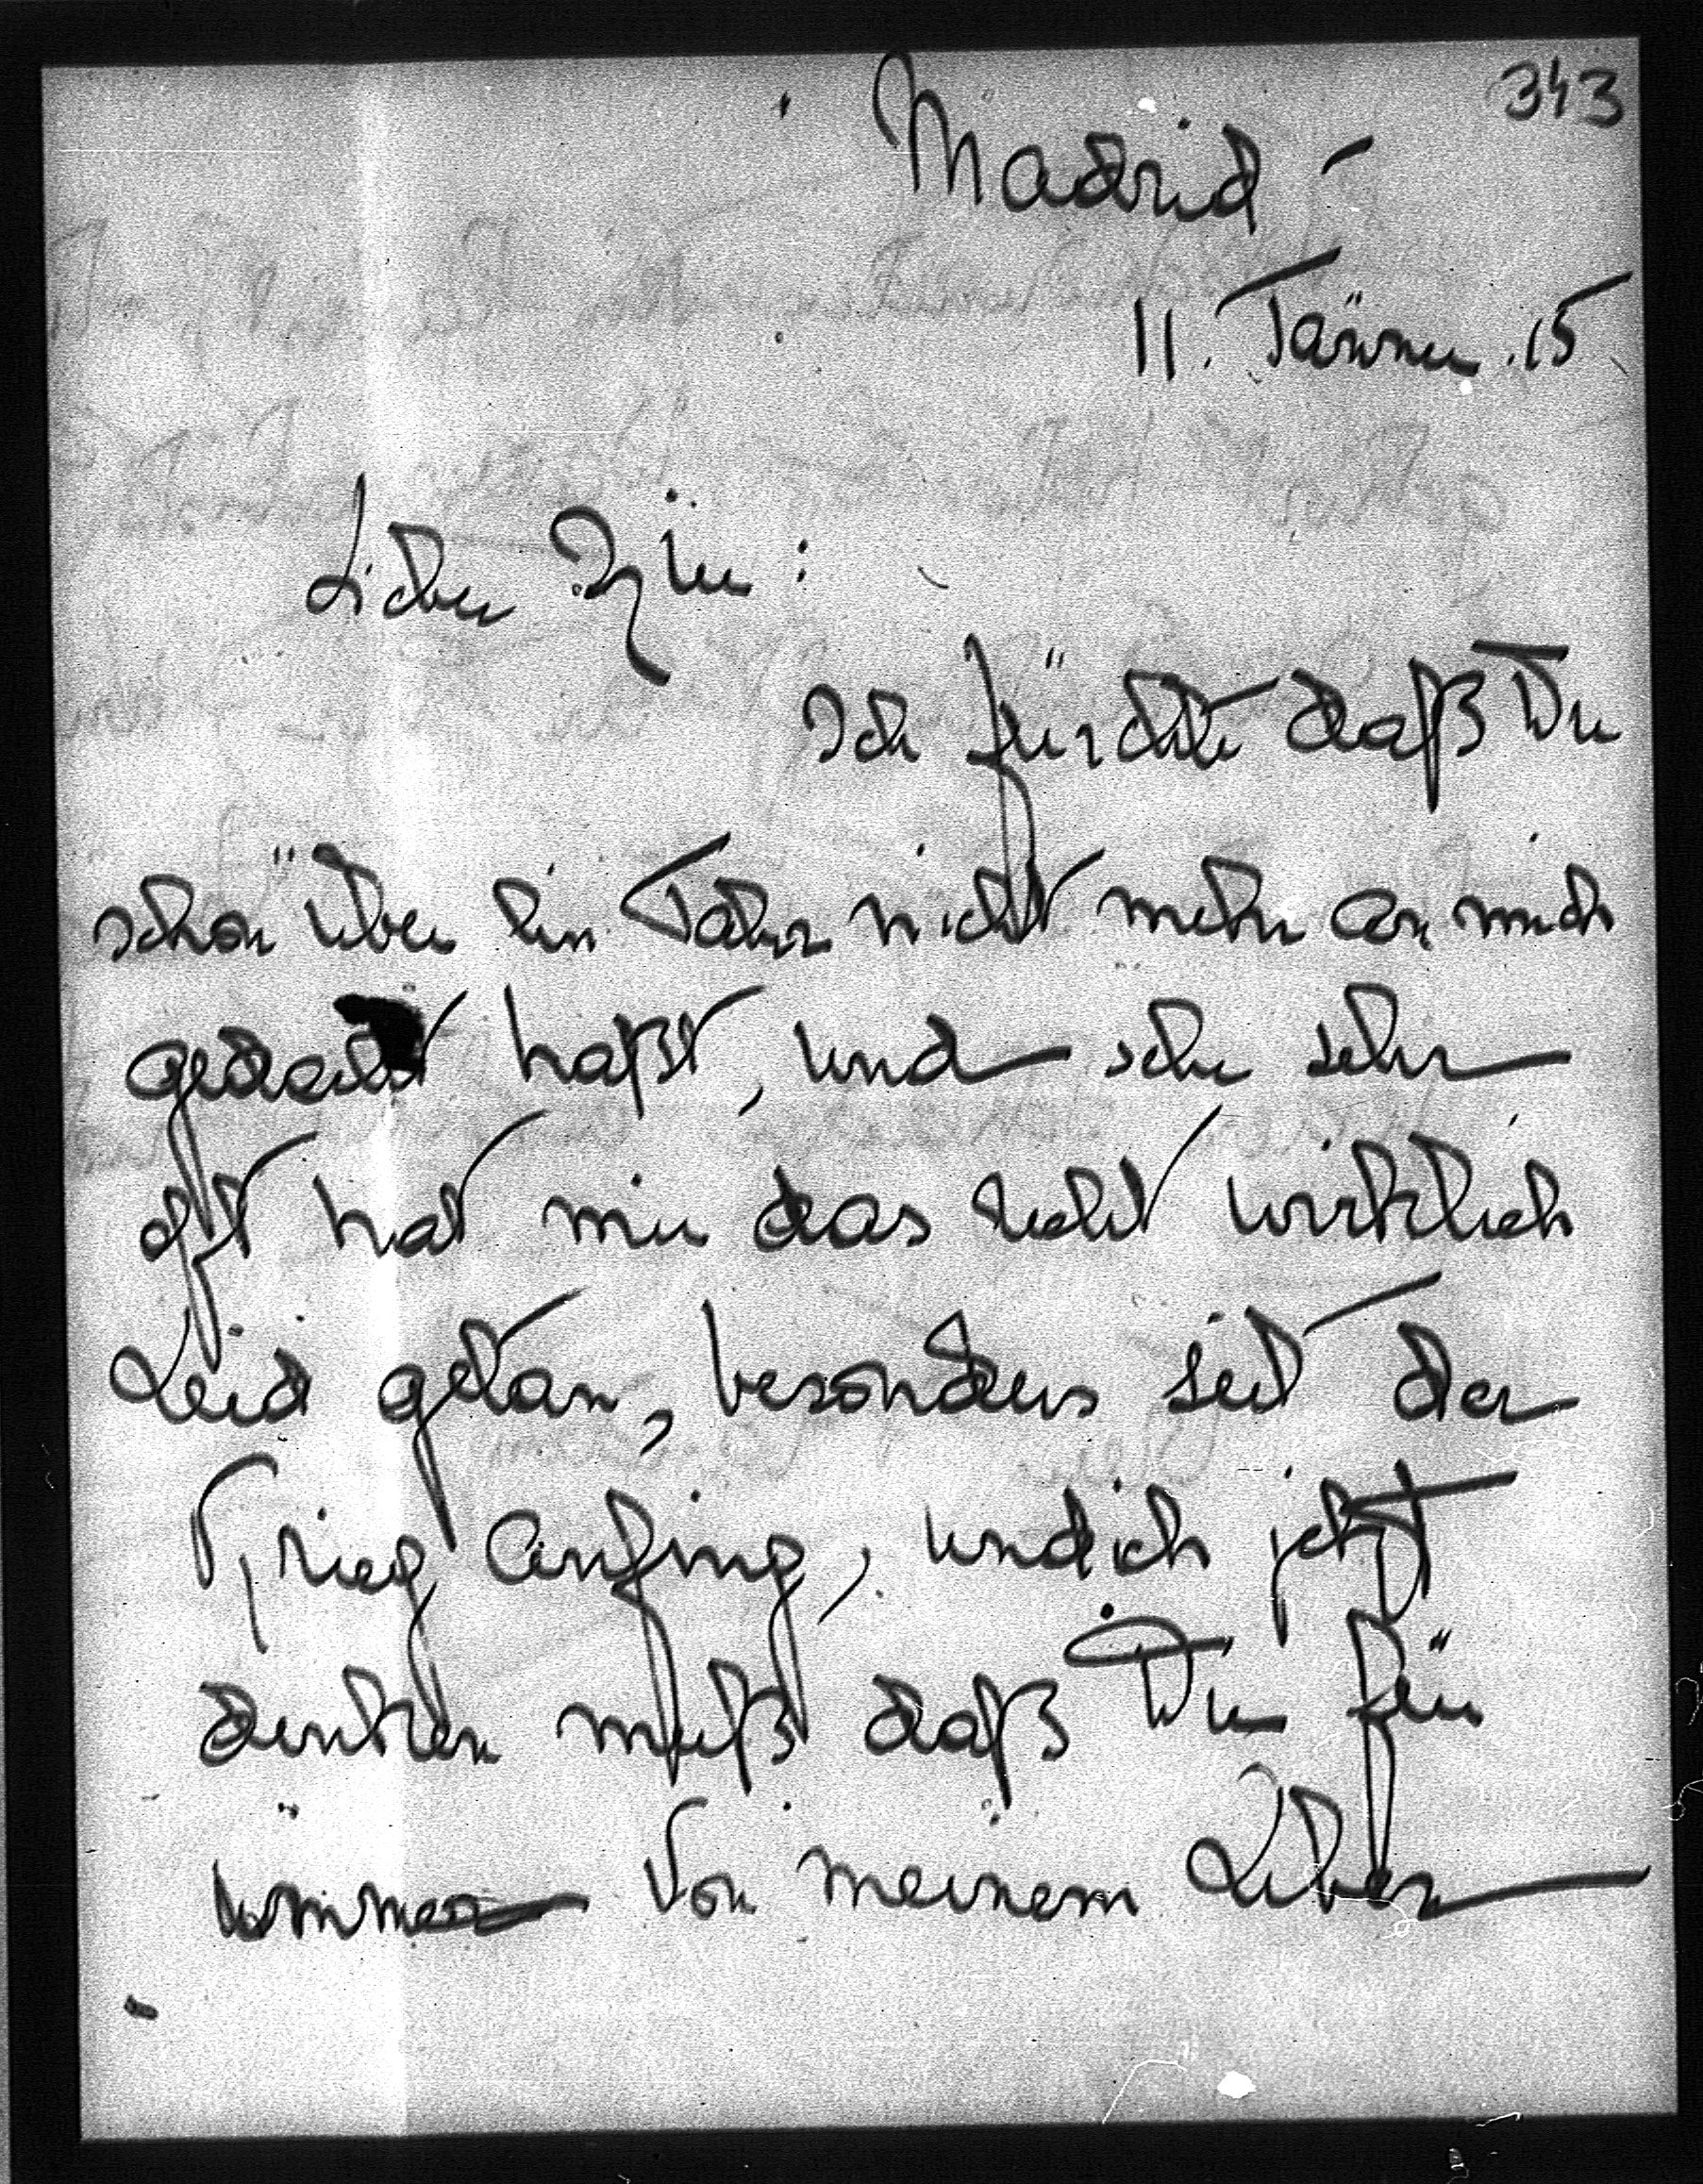 343
Madrid -
11. Jänner. 15
Lieber
Ich fürchte daß Du
schon über ein Jahr nicht mehr an mich
gedacht haßt, und sehr sehr
oft hat mir das recht wirklich
Leid getan, besonders seit der
Krieg anfing, und ich jetzt
denken muß daß Du für
immer von meinem Leben